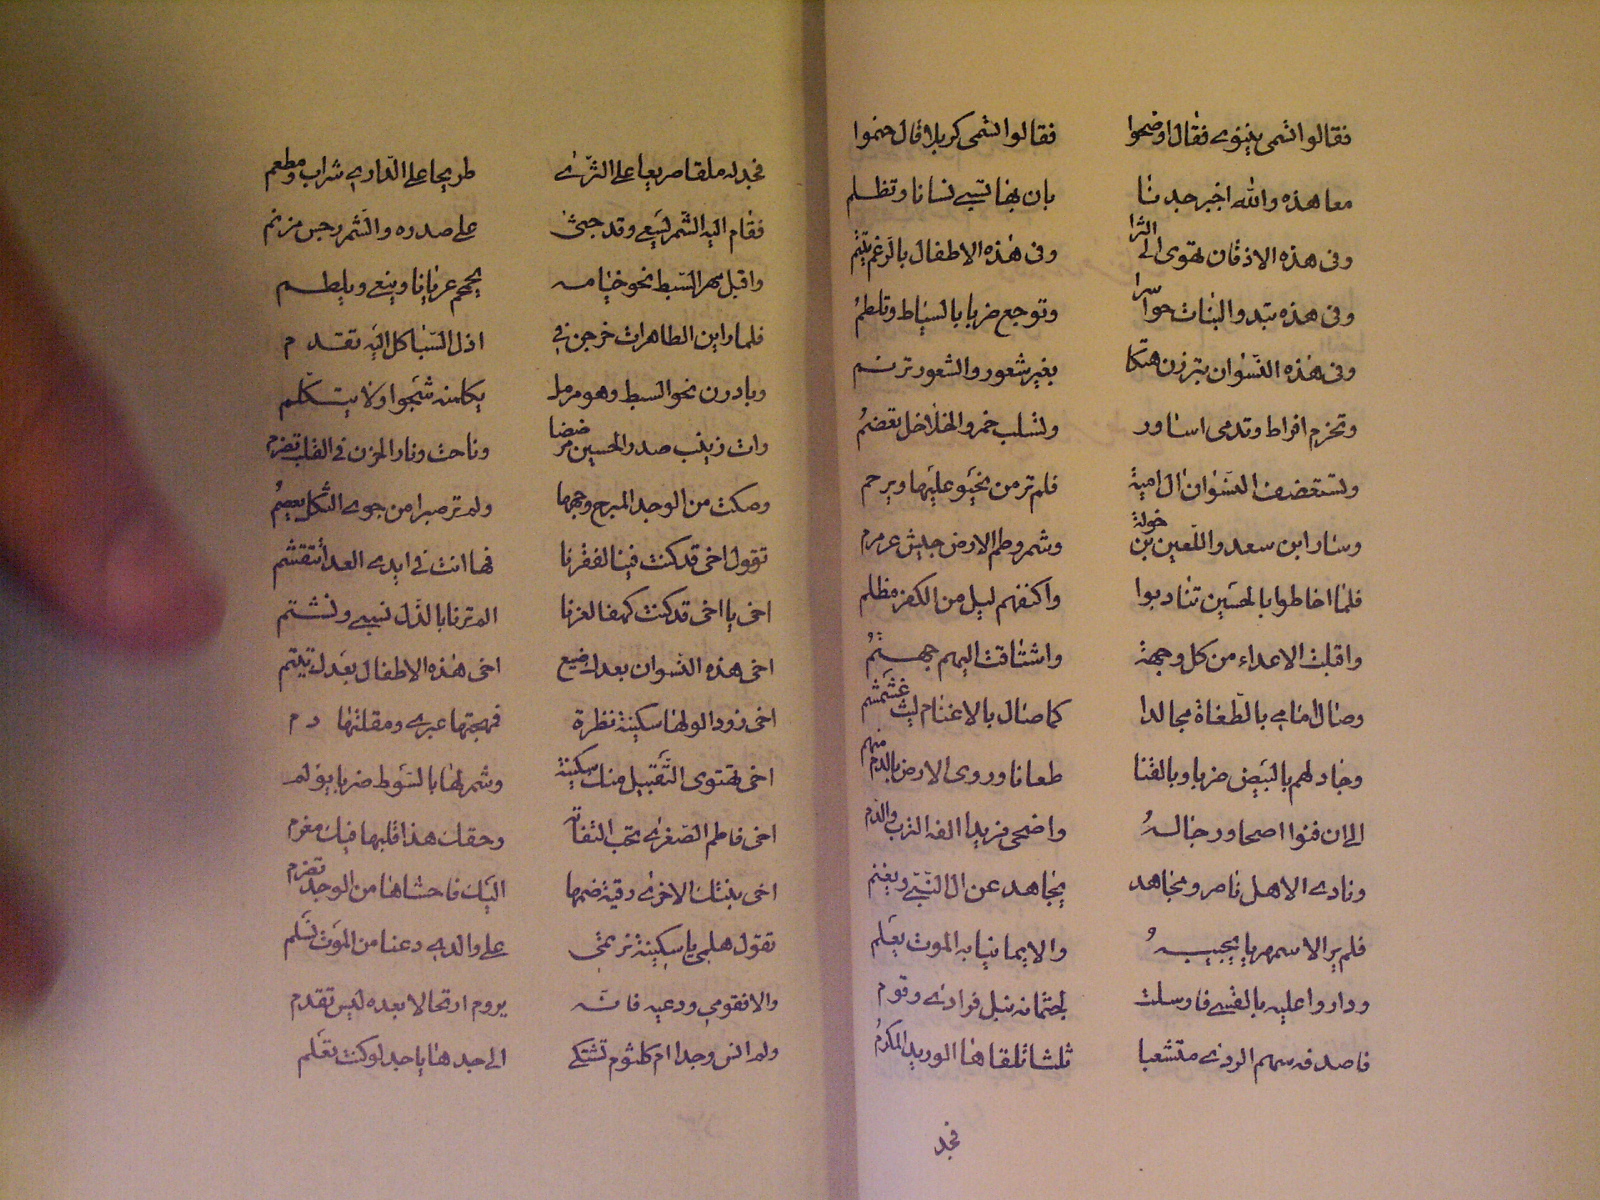 فقالوا تسمى بنينوى فقال اوضحوا فقالوا تسمى كربلا قال خيموا
معا هذه والله اخبر جدنا بان بها تسبى نسانا وتظلم
وفى هذه الاذقان تهوى الى الثرا وفى هذه الاطفال بالرغم تيتم
وفى هذه تبدو البنات حواسرا وتوجع ضربا بالسياط وتلطم
وفى هذه النسوان يبرزن هتكا بغير شعور والشعور
وتخرم اقراط وتدمى اساور وتسلب خمر والخلاخل تفصم
النسوان ال امية فلم تر من يحنو عليها ويرحم
وسار ابن سعد واللعين بن خولة وشمر وطم الارض جيش عرمرم
فلما احاطوا بالحسين تنادبوا واكنفهم ليل من الكفر مظلم
واقبلت الاعداء من كل وجهة واشتاقت اليهم جهنم
وصال امامى بالطغاة مجالدا كما صال بالاغنام ليث غشمشم
وجادلهم بالبيض ضربا وبالقنا طعانا وروى الارض بالدم منهم
الى ان فنوا اصحابه ورجاله واضحى فريدا الفه الترب والدم
ونادى الا هل ناصر ومجاهد يجاهد عن ال النبى ويغنم
فلم ير الا سمهريا يجيبه والا يمانيا به الموت يعلم
وداروا عليه بالقسى فارسلت لجثمانه نبل فرادى وتوم
فاصدفه سهم الردى متشعبا ثلثا تلقاها الوريد المكرم
فجد
فجدله ملقا صريعا على الثرى طريحا على الدارى شراب ومطعم
فقام اليه الشمر يسعى وقد جثى على صدره والشمر رجس مزنم
واقبل مهر السبط نحو خيامه يحمحم عريانا وينعى ويلطم
فلما راين الطاهرات خرجن فى اذل السبا كل اليه تقدم
وبادرن نحو السبط وهو مرمل يكلمنه شجوا ولا يتكلم
وات زينب صدر الحسين مرضضا وناحت ونار الحزن فى القلب تضرم
وصكت من الوجد المبرح وجهها ولم تر صبرا من جوى الثكل يعصم
تقول اخى قد كنت فينا لفقرنا فها انت فى ايدى العدا تتقسم
اخى يا اخى قد كنت كهفا لعزنا الم ترنا بالذل نسبى ونشتم
اخى هذه النسوان بعدك ضيع اخى هذه الاطفال بعدك تيتم
اخى زود الولها سكينة نظرة فمهجتها عبرى ومقلتها دم
اخى تهتوى التقبيل منك سكينة وشمر لها بالسوط ضربا يؤلم
اخى فاطم الصغرى تحب التفاتة وحقك هذا قلبها فيك مغرم
اخى بنتك الاخرى رقية ضمها اليك فاحشاها من الوجد تضرم
تقول هلمى يا سكينة نرتمى على والدى دعنا من الموت نسلم
والا فقومى ودعيه فانه يروم ارتحالا بعده ليس تقدم
ولم انس وجدا ام كلثوم تشتكى الى جدها يا جد لو كنت تعلم